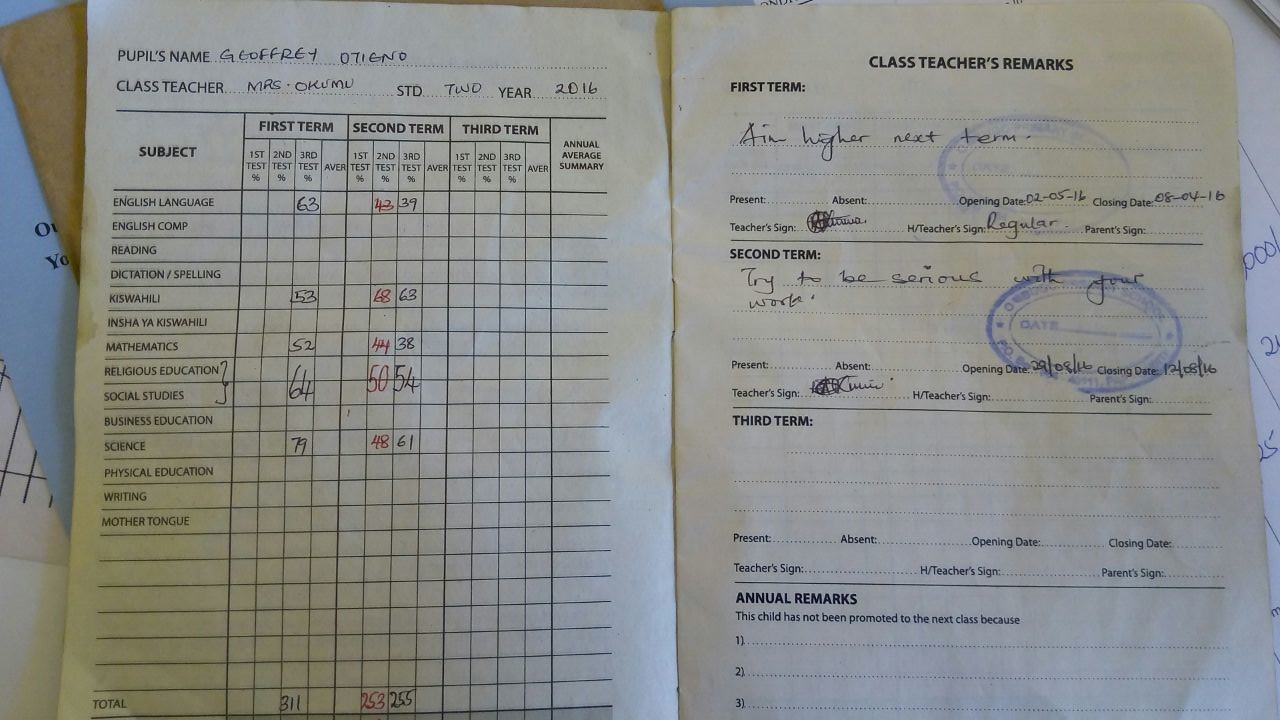 PUPIL'S NAME GEOFFREY OTIENO
CLASS TEACHER MRS. OKUMU STD TWO YEAR 2016
SUBJECT FIRST TERM SECOND TERM THIRD TERM ANNUAL AVERAGE SUMMARY
1ST TEST % 2ND TEST % 3RD TEST % AVER 1ST TEST % 2ND TEST % 3RD TEST % AVER 1ST TEST % 2ND TEST % 3RD TEST % AVER
ENGLISH LANGUAGE 63 43 39
ENGLISH COMP
READING
DICTATION / SPELLING
KISWAHILI 53 68 63
INSHA YA KISWAHILI
MATHEMATICS 52 44 38
RELIGIOUS EDUCATION
SOCIAL STUDIES 64 50 54
BUSINESS EDUCATION
SCIENCE 79 48 61
PHYSICAL EDUCATION
WRITING
MOTHER TONGUE
TOTAL 311 253 255
CLASS TEACHER'S REMARKS
FIRST TERM:
Aim higher next term.
Present: Absent: Opening Date: 02-05-16 Closing Date: 08-04-16
Teacher's Sign: H/Teacher's Sign: Regular Parent's Sign:
SECOND TERM:
Try to be serious with your
work.
Present: Absent: Opening Date: 29/08/16 Closing Date: 12/08/16
Teacher's Sign: H/Teacher's Sign: Parent's Sign:
DATE
THIRD TERM:
Present: Absent: Opening Date: Closing Date:
Teacher's Sign: H/Teacher's Sign: Parent's Sign:
ANNUAL REMARKS
This child has not been promoted to the next class because
1)
2)
3)